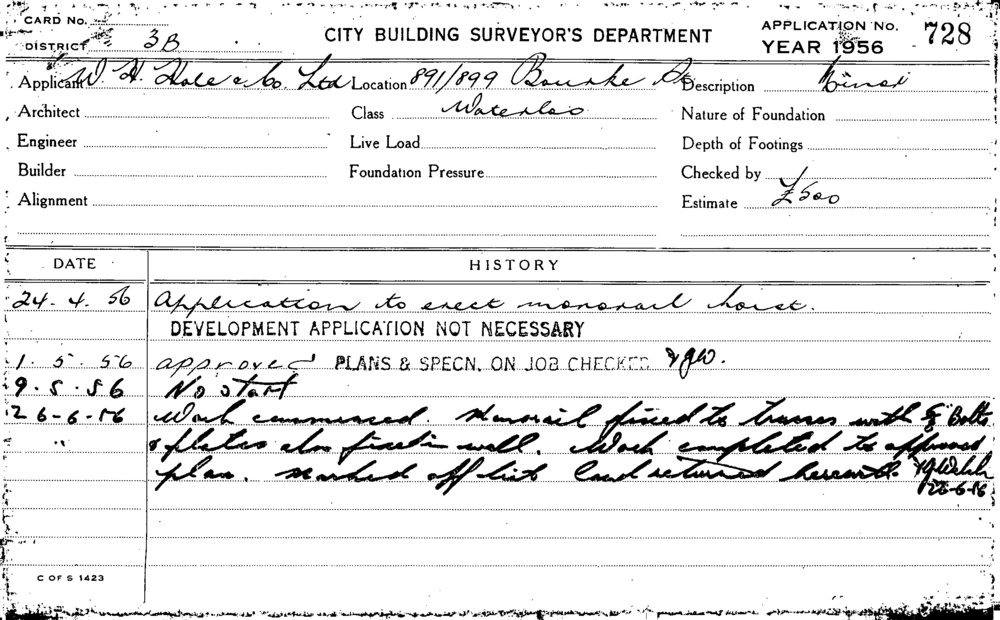 CARD No.
DISTRICT 3B
CITY BUILDING SURVEYOR'S DEPARTMENT
APPLICATION No. 728
YEAR 1956
Applicant W. H. Hole & Co. Ltd Location 891/899 Bourke St Description Minor
Architect Class Waterloo Nature of Foundation
Engineer Live Load Depth of Footings
Builder Foundation Pressure Checked by
Alignment Estimate £500
DATE HISTORY
24. 4. 56 Application to erect monorail hoist.
DEVELOPMENT APPLICATION NOT NECESSARY
1. 5. 56 approved PLANS & SPECN. ON JOB CHECKED
9. 5. 56 No start
26-6-56 Work commenced Monorail fixed to trusses with Bolts
" & plates also fixed in wall. Work completed to approved
plan. Marked off list Card returned herewith
26-6-56
C OF S 1423